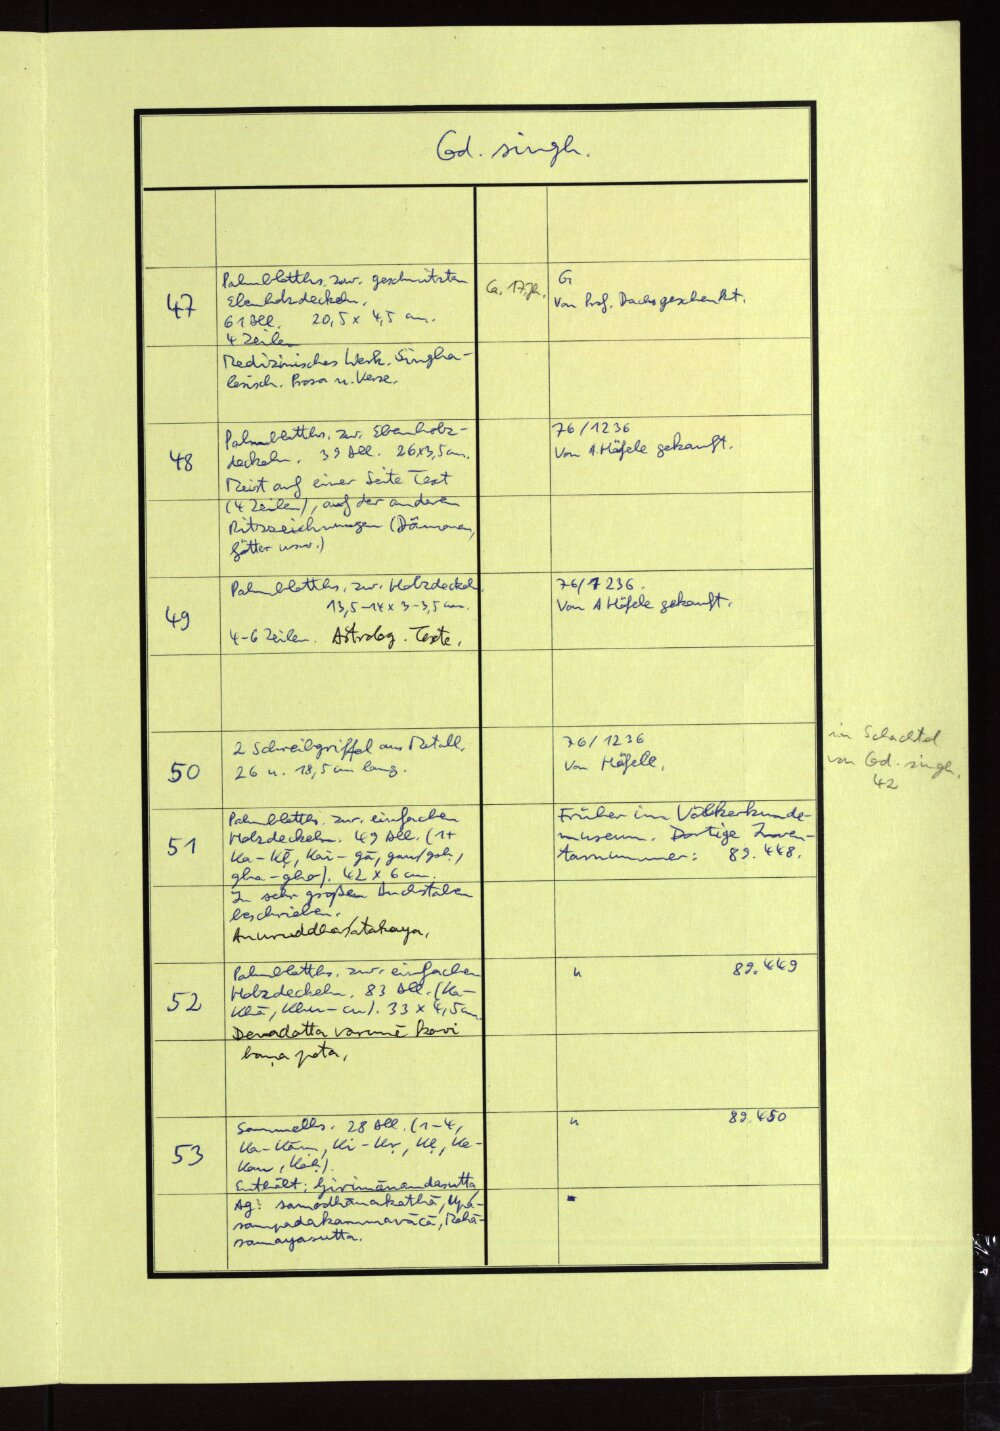 Cod. singh.
47
Palmblatths. zw. geschnitzten
Ebenholzdeckeln.
61 Bll. 20,5 x 4,5 cm.
4 Zeilen
Medizinisches Werk. Singha-
lesisch. Prosa u. Verse.
Ca. 17. Jh.
G
Von Prof. Dachs geschenkt.
48
Palmblatths. zw. Ebenholz-
deckeln. 39 Bll. 26x3,5 cm.
Meist auf einer Seite Text
(4 Zeilen), auf der anderen
Ritzzeichnungen (Dämonen,
Götter usw.)
76/1236
Von A Häfele gekauft.
49
Palmblatths. zw. Holzdeckeln.
13,5-14 x 3-3,5 cm.
4-6 Zeilen. Astrolog. Texte.
76/1236.
Von A Häfele gekauft.
50
2 Schreibgriffel aus Metall.
26 u. 18,5 cm lang.
76/1236
Von Häfele.
in Schachtel
von Cod. singh.
42
51
Palmblatths. zw. einfachen
Holzdeckeln. 49 Bll. (1+
Ka-Kḹ, Kai-gā, gau/gaḥ,
gha-gho). 42 x 6 cm.
In sehr großen Buchstaben
beschrieben.
Anuruddhaśatakaya.
Früher im Völkerkunde-
museum. Dortige Inven-
tarnummer: 89.448.
52
Palmblatths. zw. einfachen
Holzdeckeln. 83 Bll. (Ka-
Khā, Khu-cu). 33 x 4,5 cm
Devadatta varuṇē kavi
baṇa pota.
" 89.449
53
Sammelhs. 28 Bll. (1-4,
Ka-Kām, Ki-Kṛ, Kḷ, Ke-
Kau, Kaḥ).
Enthält: Girimānandasutta,
samodhānakathā, Upa-
sampadakammavācā, Mahā-
samayasutta.
" 89.450